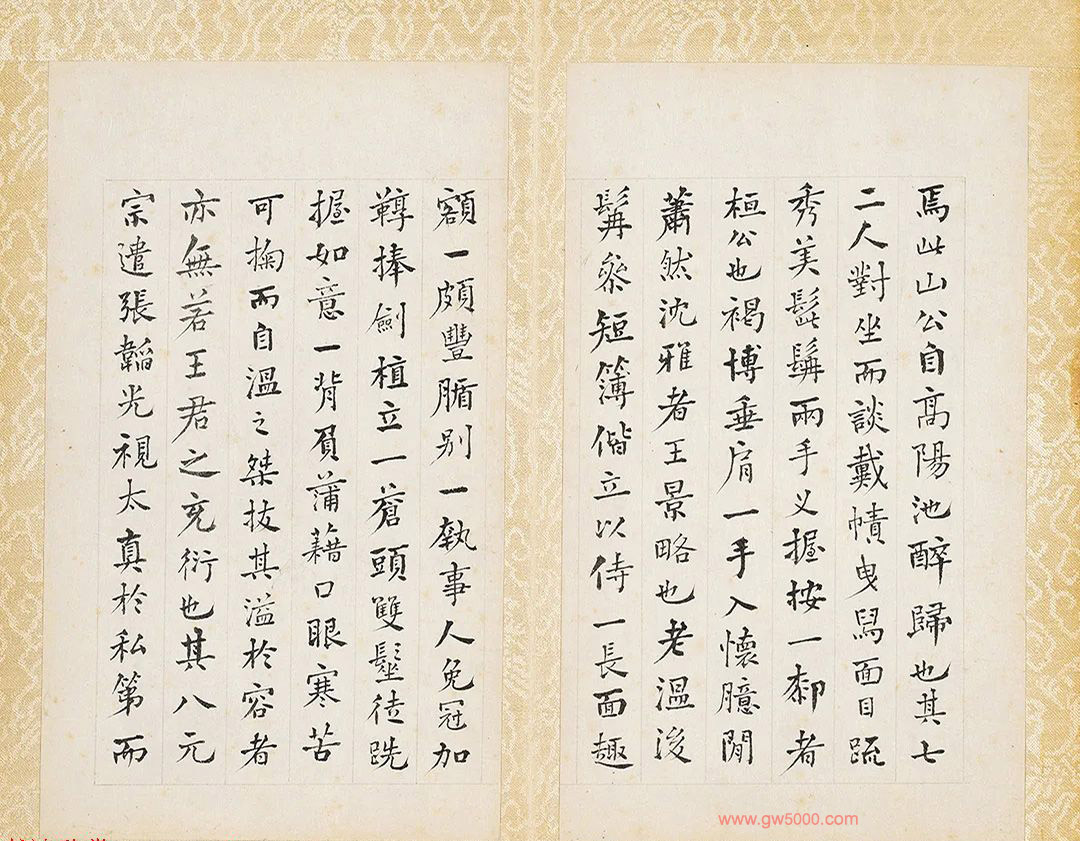 焉此山公自高陽池醉歸也其七
二人對坐而談戴幘曳舄面目䟽
秀美髭髯兩手乂握按一𰯼者
桓公也褐博垂肩一手入懷臆閒
蕭然沈雅者王景略也老溫後
髯叅短簿偕立以侍一長面趣
額一頗豐腯别一執事人免冠加
鞟捧劍植立一蒼頭雙髽徒跣
握如意一背負蒲藉口眼寒苦
可掬而自溫之桀抜其溢於容者
亦無若王君之充衍也其八元
宗遣張韜光視太真於私第而
www.gw5000.com